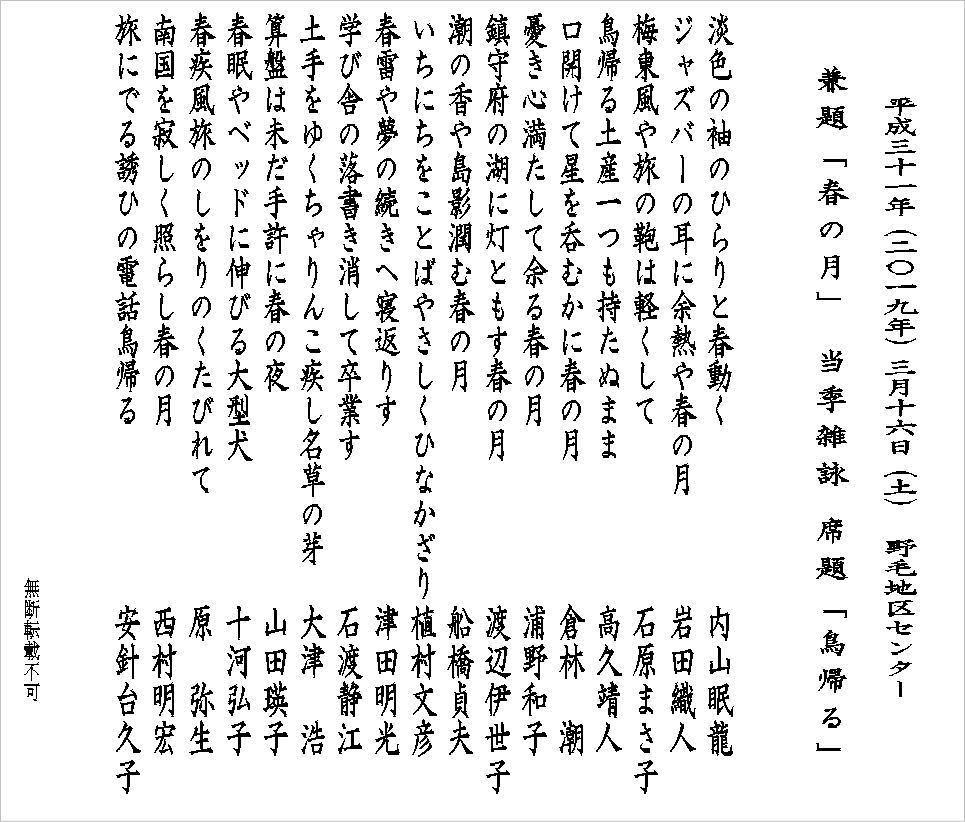 平成三十一年（二〇一九年）三月十六日（土）　野毛地区センター
兼題「春の月」　当季雑詠　席題「鳥帰る」
淡色の袖のひらりと春動く　内山眠龍
ジャズバーの耳に余熱や春の月　岩田織人
梅東風や旅の鞄は軽くして　石原まさ子
鳥帰る土産一つも持たぬまま　高久靖人
口開けて星を呑むかに春の月　倉林　潮
憂き心満たして余る春の月　浦野和子
鎮守府の湖に灯ともす春の月　渡辺伊世子
潮の香や島影潤む春の月　船橋貞夫
いちにちをことばやさしくひなかざり　植村文彦
春雷や夢の続きへ寝返りす　津田明光
学び舎の落書き消して卒業す　石渡静江
土手をゆくちゃりんこ疾し名草の芽　大津　浩
算盤は未だ手許に春の夜　山田瑛子
春眠やベッドに伸びる大型犬　十河弘子
春疾風旅のしをりのくたびれて　原　弥生
南国を寂しく照らし春の月　西村明宏
旅にでる誘ひの電話鳥帰る　安針台久子
無断転載不可